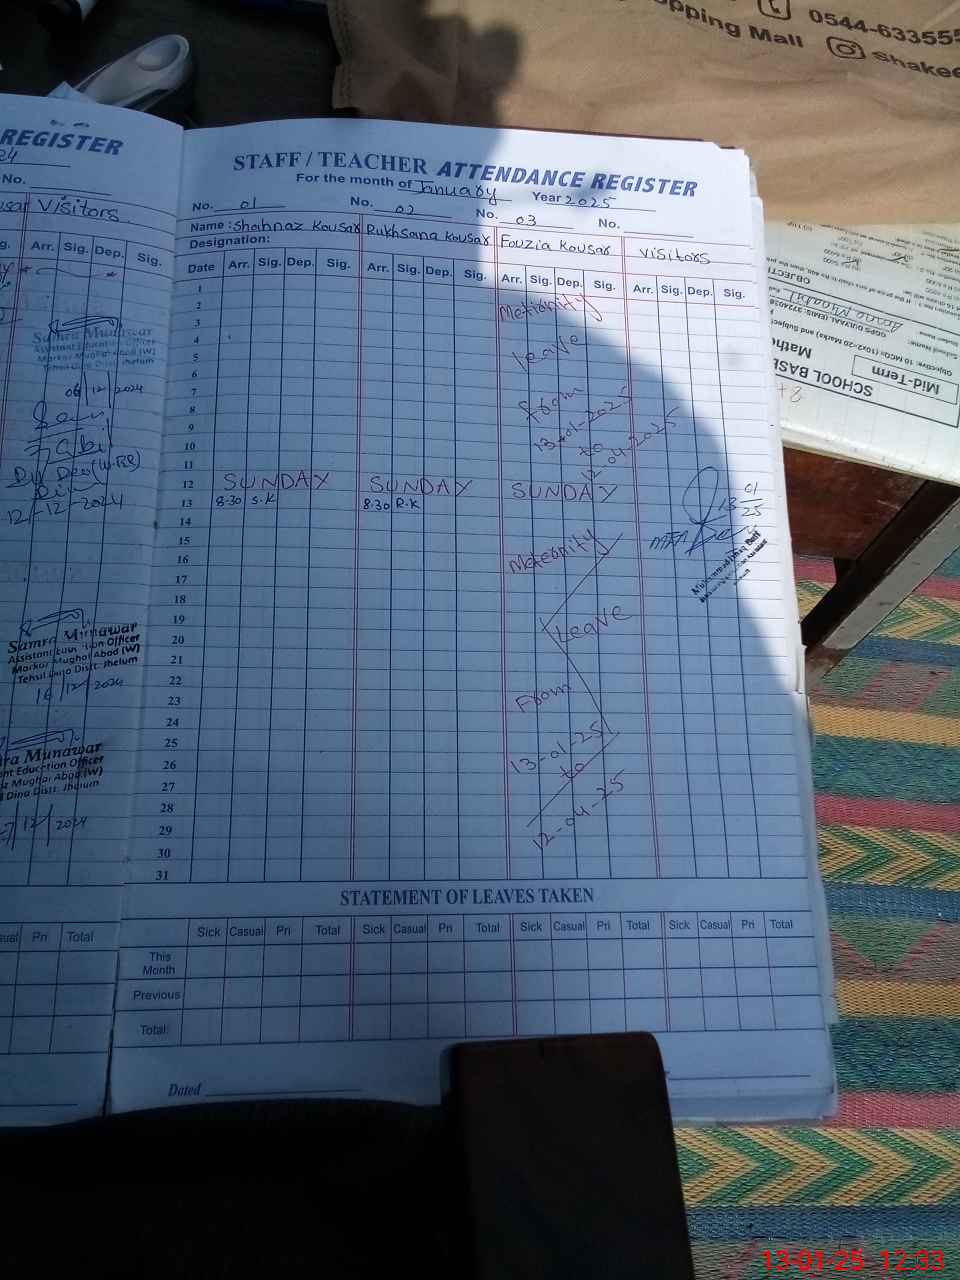 0544-633555
pping Mall
Shakee
REGISTER
No.
Visitors
Arr. Sig. Dep. Sig.
Samra Munawar
Assistant Education Officer
Markaz Mughal Abad (W)
Tehsil Dina Distt: Jhelum
06/12/2024
12-12-2024
Samra Munawar
Assistant Education Officer
Markaz Mughal Abad (W)
Tehsil Dina Distt: Jhelum
16/12/2024
ra Munawar
nt Education Officer
z Mughal Abad (W)
Dina Distt: Jhelum
/12/2024
asual Pri Total
STAFF / TEACHER ATTENDANCE REGISTER
For the month of January Year 2025
No. 01 No. 02 No. 03 No.
Name: Shahnaz Kousar Rukhsana Kousar Fouzia Kousar Visitors
Designation:
Date Arr. Sig. Dep. Sig. Arr. Sig. Dep. Sig. Arr. Sig. Dep. Sig. Arr. Sig. Dep. Sig.
1
2 Meternity
3
4 Leave
5
6
7 From
8
9 13-01-2025
10 to
11 12-04-2025
12 SUNDAY SUNDAY SUNDAY
13 8:30 S.K 8:30 R.K 13 01/25
14
15 Meternity
16
17
18
19 Leave
20
21
22
23 From
24
25 13-01-25
26 to
27
28 12-04-25
29
30
31
STATEMENT OF LEAVES TAKEN
Sick Casual Pri Total Sick Casual Pri Total Sick Casual Pri Total Sick Casual Pri Total
This Month
Previous
Total:
Dated
SCHOOL BASE
Mid-Term
Mathe
OBJECTI
13-01-25 12:33